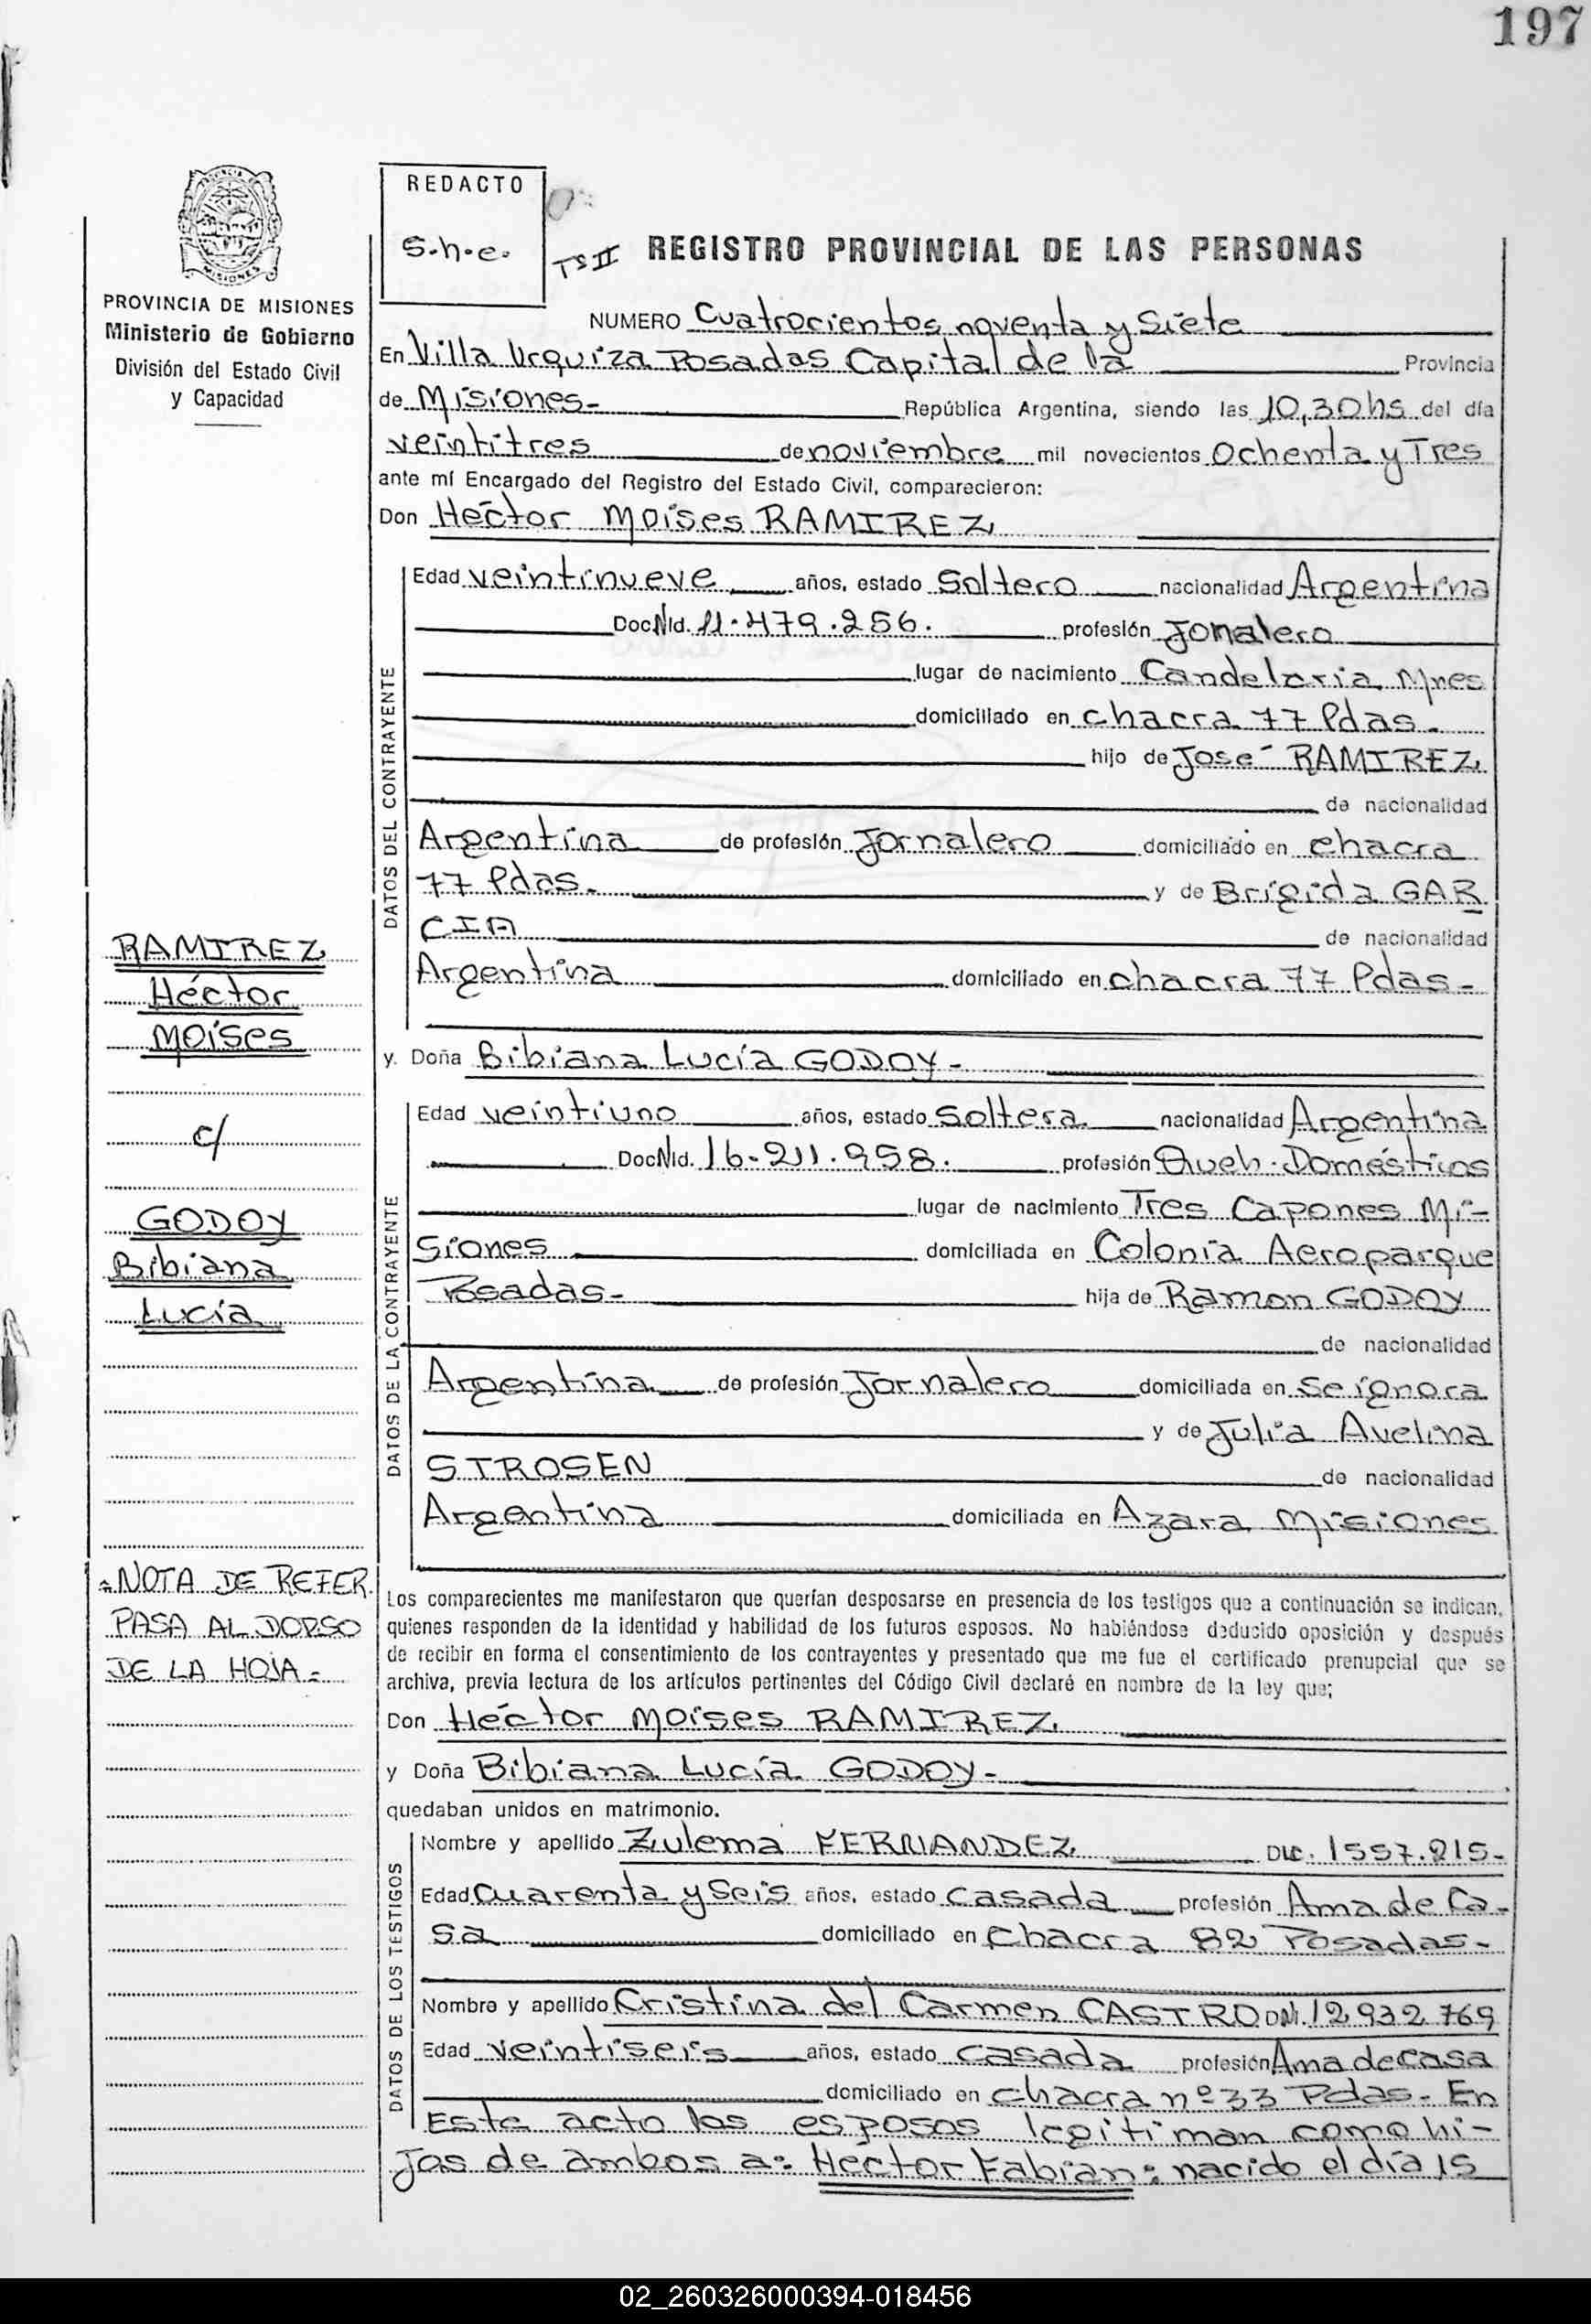 197
REDACTO
S.h.e.
TS II
REGISTRO PROVINCIAL DE LAS PERSONAS
MISIONES
PROVINCIA DE MISIONES
Ministerio de Gobierno
División del Estado Civil
y Capacidad
NUMERO Cuatrocientos noventa y Siete
En Villa Urquiza Posadas Capital de la Provincia
de Misiones- República Argentina, siendo las 10,30hs del día
veintitres de noviembre mil novecientos Ochenta y Tres
ante mí Encargado del Registro del Estado Civil, comparecieron:
Don Héctor Moíses RAMIREZ
DATOS DEL CONTRAYENTE
Edad veintinueve años, estado Soltero nacionalidad Argentina
Doc.N Id. 11.479.256. profesión Jornalero
lugar de nacimiento Candelaria Mnes
domiciliado en chacra 77 Pdas.
hijo de José RAMIREZ
de nacionalidad
Argentina de profesión Jornalero domiciliado en chacra
77 Pdas.- y de Brígida GAR
CIA de nacionalidad
Argentina domiciliado en chacra 77 Pdas-
RAMIREZ
Héctor
Moíses
c/
GODOY
Bibiana
Lucía
y. Doña Bibiana Lucía GODOY-
DATOS DE LA CONTRAYENTE
Edad veintiuno años, estado Soltera nacionalidad Argentina
Doc.N Id. 16.211.958. profesión Queh. Domésticos
lugar de nacimiento Tres Capones Mi-
siones domiciliada en Colonia Aeroparque
Posadas- hija de Ramon GODOY
de nacionalidad
Argentina de profesión Jornalero domiciliada en Se ignora
y de Julia Avelina
STROSEN de nacionalidad
Argentina domiciliada en Azara Misiones
=NOTA DE REFER.
PASA AL DORSO
DE LA HOJA=
Los comparecientes me manifestaron que querían desposarse en presencia de los testigos que a continuación se indican,
quienes responden de la identidad y habilidad de los futuros esposos. No habiéndose deducido oposición y después
de recibir en forma el consentimiento de los contrayentes y presentado que me fue el certificado prenupcial que se
archiva, previa lectura de los artículos pertinentes del Código Civil declaré en nombre de la ley que;
Don Héctor Moíses RAMIREZ
y Doña Bibiana Lucía GODOY-
quedaban unidos en matrimonio.
DATOS DE LOS TESTIGOS
Nombre y apellido Zulema FERNANDEZ DLC. 1557.215-
Edad Cuarenta y Seis años, estado Casada profesión Ama de Ca-
sa domiciliado en Chacra 82 Posadas-
Nombre y apellido Cristina del Carmen CASTRO DNI. 12 932 769
Edad veintiseis años, estado Casada profesión Ama de casa
domiciliado en chacra nº 33 Pdas- En
Este acto los esposos legitiman como hi-
Jos de ambos a: Hector Fabian: nacido el día 15
02_260326000394-018456